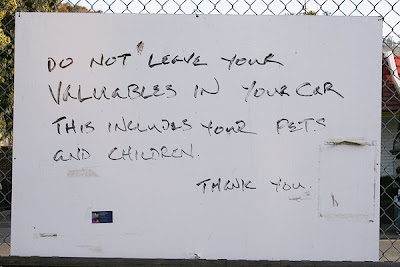 DO NOT LEAVE YOUR
VALUABLES IN YOUR CAR
THIS INCLUDES YOUR PETS
AND CHILDREN.
THANK YOU.